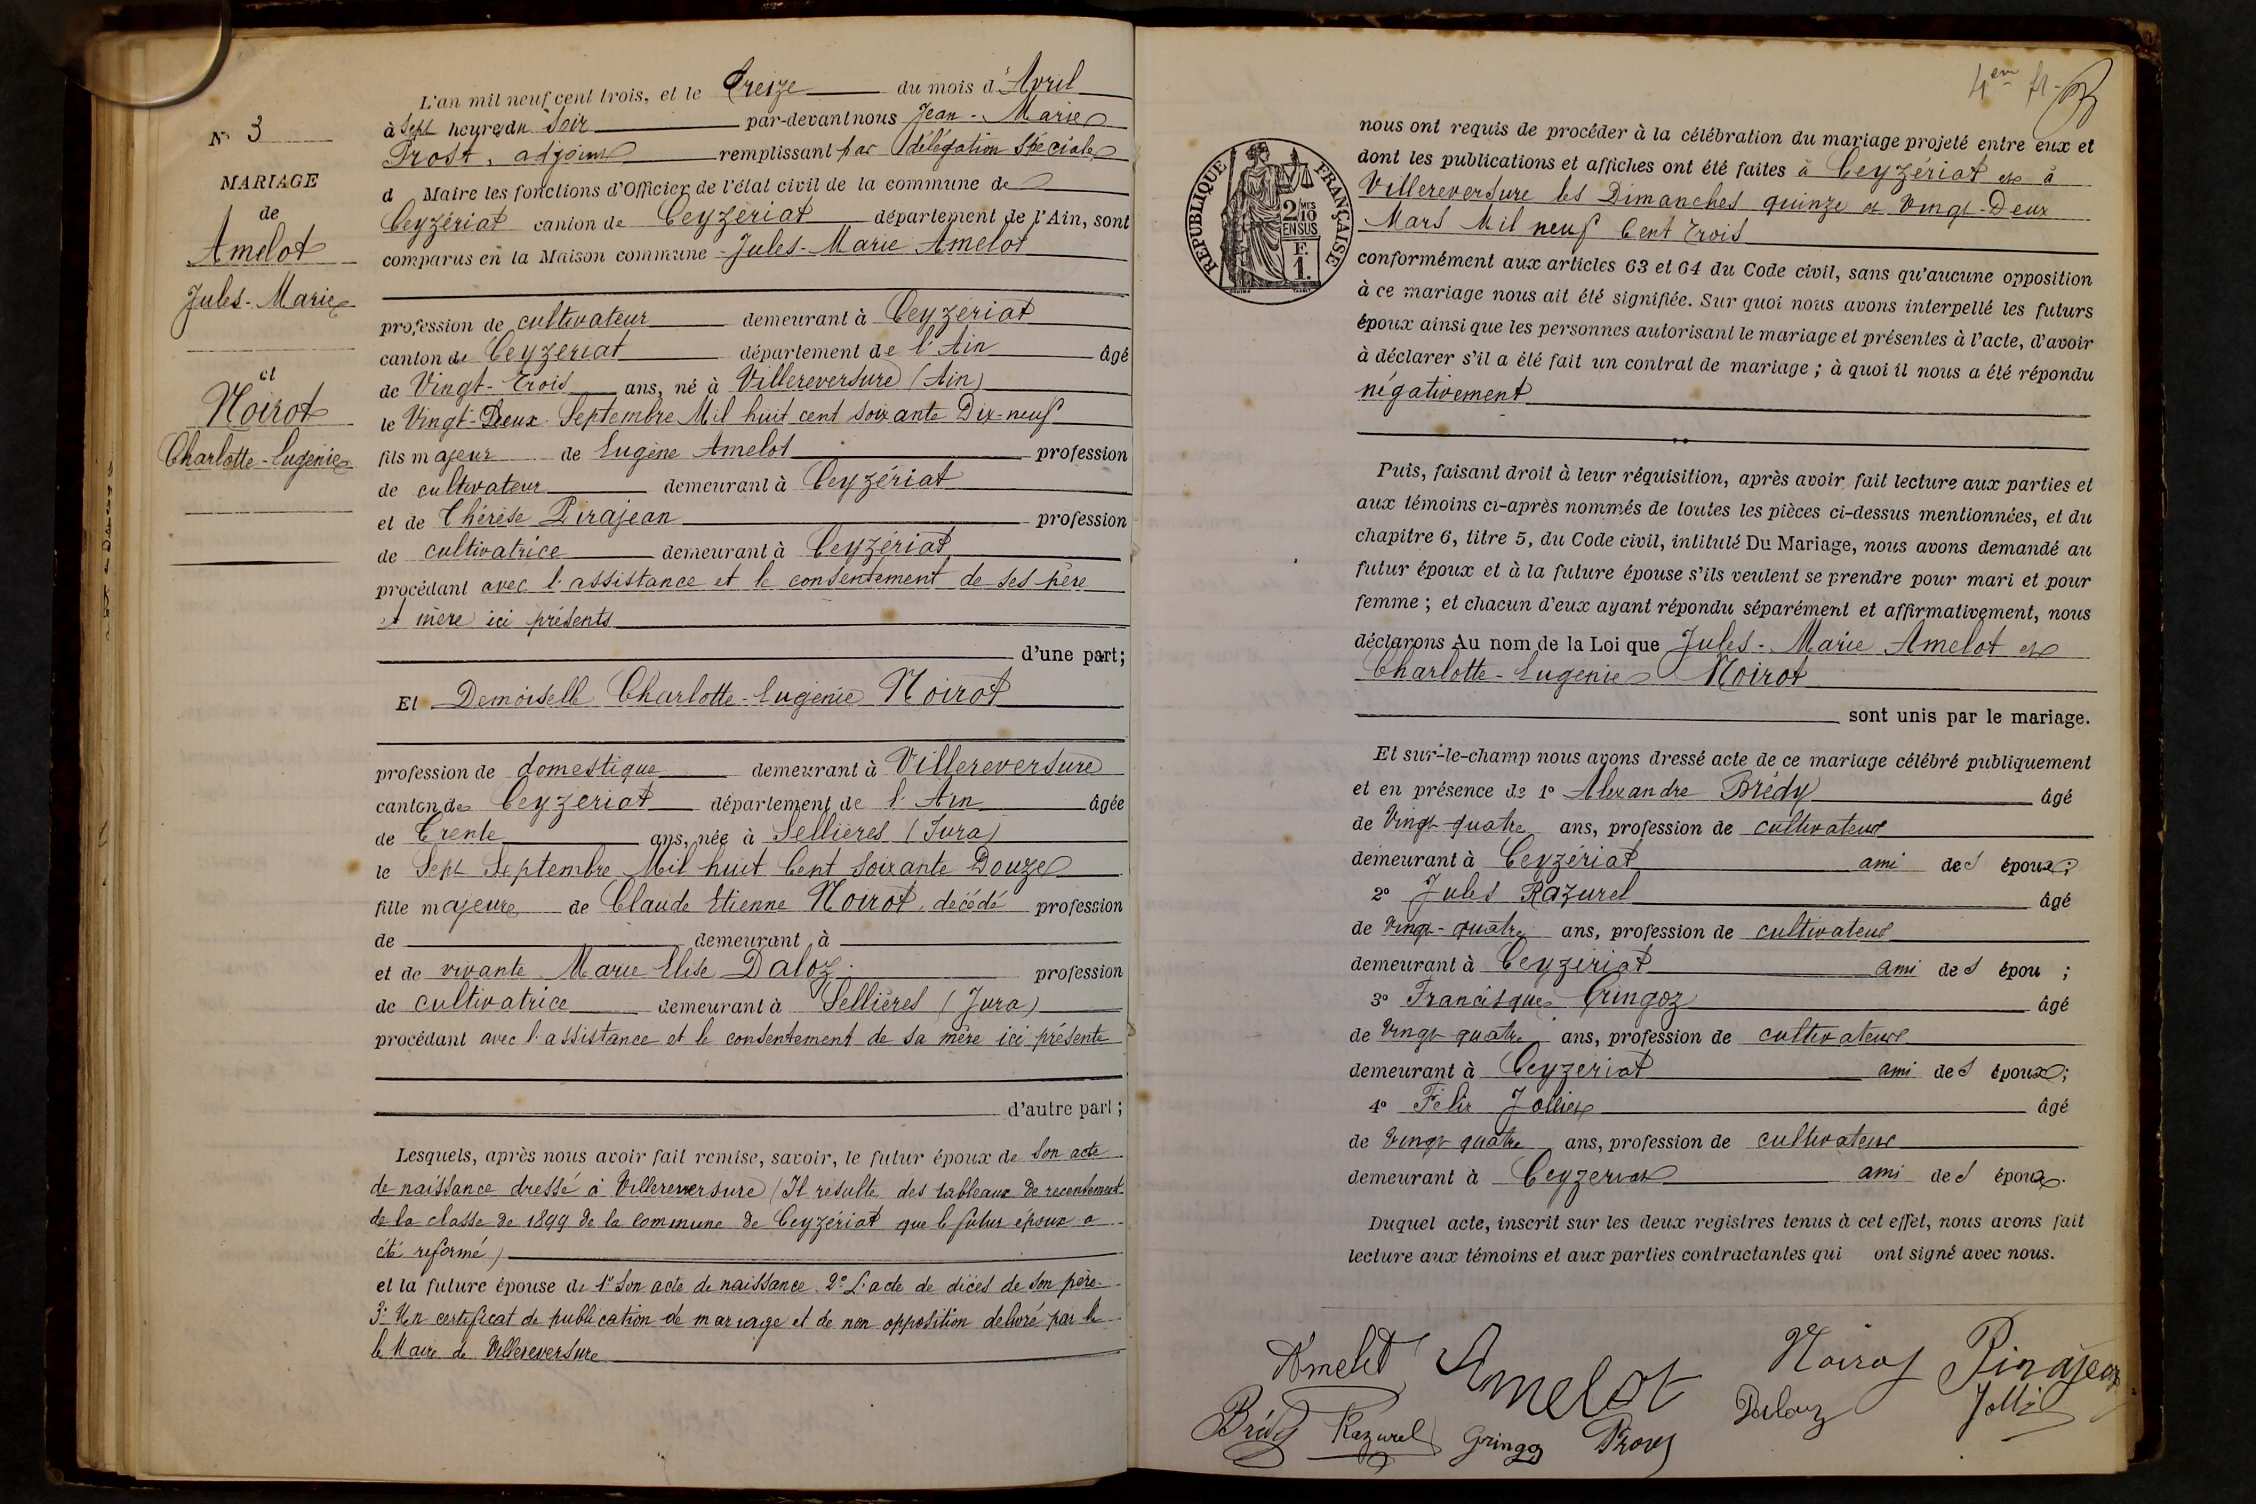 N° 3
MARIAGE
de
Amelot
Jules-Marie
et
Noirot
Charlotte-Eugénie
L'an mil neuf cent trois, et le Treize du mois d'Avril
à Sept heures du Soir par-devant nous Jean-Marie
Prost, adjoint remplissant par délégation Spéciale
d Maire les fonctions d'Officier de l'état civil de la commune de
Ceyzériat canton de Ceyzériat département de l'Ain, sont
comparus en la Maison commune Jules-Marie Amelot
profession de cultivateur demeurant à Ceyzériat
canton de Ceyzeriat département de l'Ain âgé
de Vingt-trois ans, né à Villereversure (Ain)
le Vingt-Deux Septembre Mil huit cent soixante Dix-neuf
fils majeur de Eugène Amelot profession
de cultivateur demeurant à Ceyzériat
et de Thérèse Pirajean profession
de cultivatrice demeurant à Ceyzériat
procédant avec l'assistance et le consentement de ses père
et mère ici présents
d'une part;
Et Demoiselle Charlotte-Eugénie Noirot
profession de domestique demeurant à Villereversure
canton de Ceyzeriat département de l'Ain âgée
de Trente ans, née à Sellières (Jura)
le Sept Septembre Mil huit Cent soixante Douze
fille majeure de Claude Etienne Noirot, décédé profession
de demeurant à
et de vivante Marie Elise Daloz profession
de cultivatrice demeurant à Sellières (Jura)
procédant avec l'assistance et le consentement de sa mère ici présente
d'autre part;
Lesquels, après nous avoir fait remise, savoir, le futur époux de Son acte
de naissance dressé à Villereversure (Il résulte des tableaux de recensement
de la classe de 1899 de la commune de Ceyzériat que le futur époux a
été réformé)
et la future épouse de 1° Son acte de naissance. 2° L'acte de décès de son père.
3° Un certificat de publication de mariage et de non opposition délivré par le
le Maire de Villereversure
4em ft.
RÉPUBLIQUE FRANÇAISE
2 MES 10
EN SUS
F.
1.
nous ont requis de procéder à la célébration du mariage projeté entre eux et
dont les publications et affiches ont été faites à Ceyzériat et à
Villereversure les Dimanches quinze et Vingt-Deux
Mars Mil neuf Cent trois
conformément aux articles 63 et 64 du Code civil, sans qu'aucune opposition
à ce mariage nous ait été signifiée. Sur quoi nous avons interpellé les futurs
époux ainsi que les personnes autorisant le mariage et présentes à l'acte, d'avoir
à déclarer s'il a été fait un contrat de mariage; à quoi il nous a été répondu
négativement
Puis, faisant droit à leur réquisition, après avoir fait lecture aux parties et
aux témoins ci-après nommés de toutes les pièces ci-dessus mentionnées, et du
chapitre 6, titre 5, du Code civil, intitulé Du Mariage, nous avons demandé au
futur époux et à la future épouse s'ils veulent se prendre pour mari et pour
femme; et chacun d'eux ayant répondu séparément et affirmativement, nous
déclarons Au nom de la Loi que Jules-Marie Amelot et
Charlotte-Eugénie Noirot
sont unis par le mariage.
Et sur-le-champ nous avons dressé acte de ce mariage célébré publiquement
et en présence de 1° Alexandre Brédy âgé
de Vingt-quatre ans, profession de cultivateur
demeurant à Ceyzériat ami des époux;
2° Jules Razurel âgé
de Vingt-quatre ans, profession de cultivateur
demeurant à Ceyzériat ami des épou ;
3° Francisque Gringoz âgé
de Vingt-quatre ans, profession de cultivateur
demeurant à Ceyzériat ami des époux;
4° Félix Jollier âgé
de Vingt-quatre ans, profession de cultivateur
demeurant à Ceyzeriat ami des époux.
Duquel acte, inscrit sur les deux registres tenus à cet effet, nous avons fait
lecture aux témoins et aux parties contractantes qui ont signé avec nous.
Amelot Amelot Noirot Pirajean
Brédy Razurel Gringoz Prost Dalouz